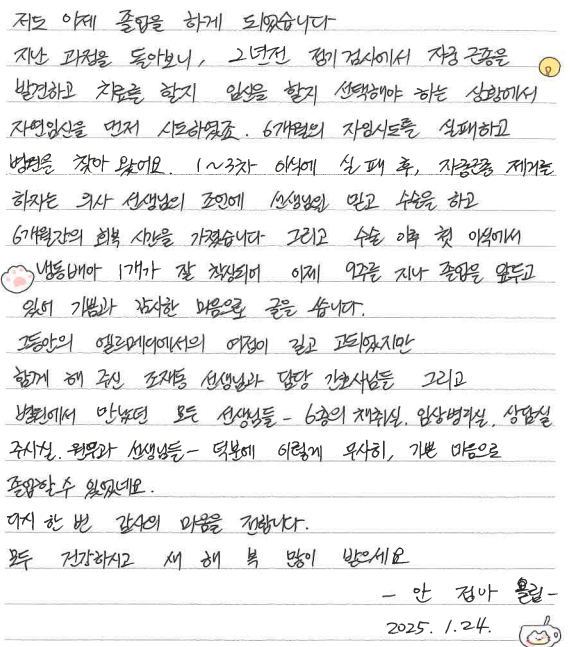 저도 이제 졸업을 하게 되었습니다
지난 과정을 돌아보니, 2년전 정기검사에서 자궁 근종을
발견하고 치료를 할지 임신을 할지 선택해야 하는 상황에서
자연임신을 먼저 시도하였죠. 6개월의 자임시도를 실패하고
병원을 찾아 왔어요. 1~3차 이식에 실패 후, 자궁근종 제거를
하자는 의사 선생님의 조언에 선생님만 믿고 수술을 하고
6개월간의 회복 시간을 가졌습니다 그리고 수술 이후 첫 이식에서
냉동배아 1개가 잘 착상되어 이제 9주를 지나 졸업을 앞두고
있어 기쁨과 감사한 마음으로 글을 씁니다.
그동안의 엘르메디에서의 여정이 길고 고되었지만
함께 해 주신 조재동 선생님과 담당 간호사님들 그리고
병원에서 만났던 모든 선생님들 - 6층의 채취실, 임상병리실, 상담실
주사실, 원무과 선생님들 - 덕분에 이렇게 무사히, 기쁜 마음으로
졸업할 수 있었네요.
다시 한 번 감사의 마음을 전합니다.
모두 건강하시고 새 해 복 많이 받으세요
- 안 정아 올림 -
2025. 1. 24.